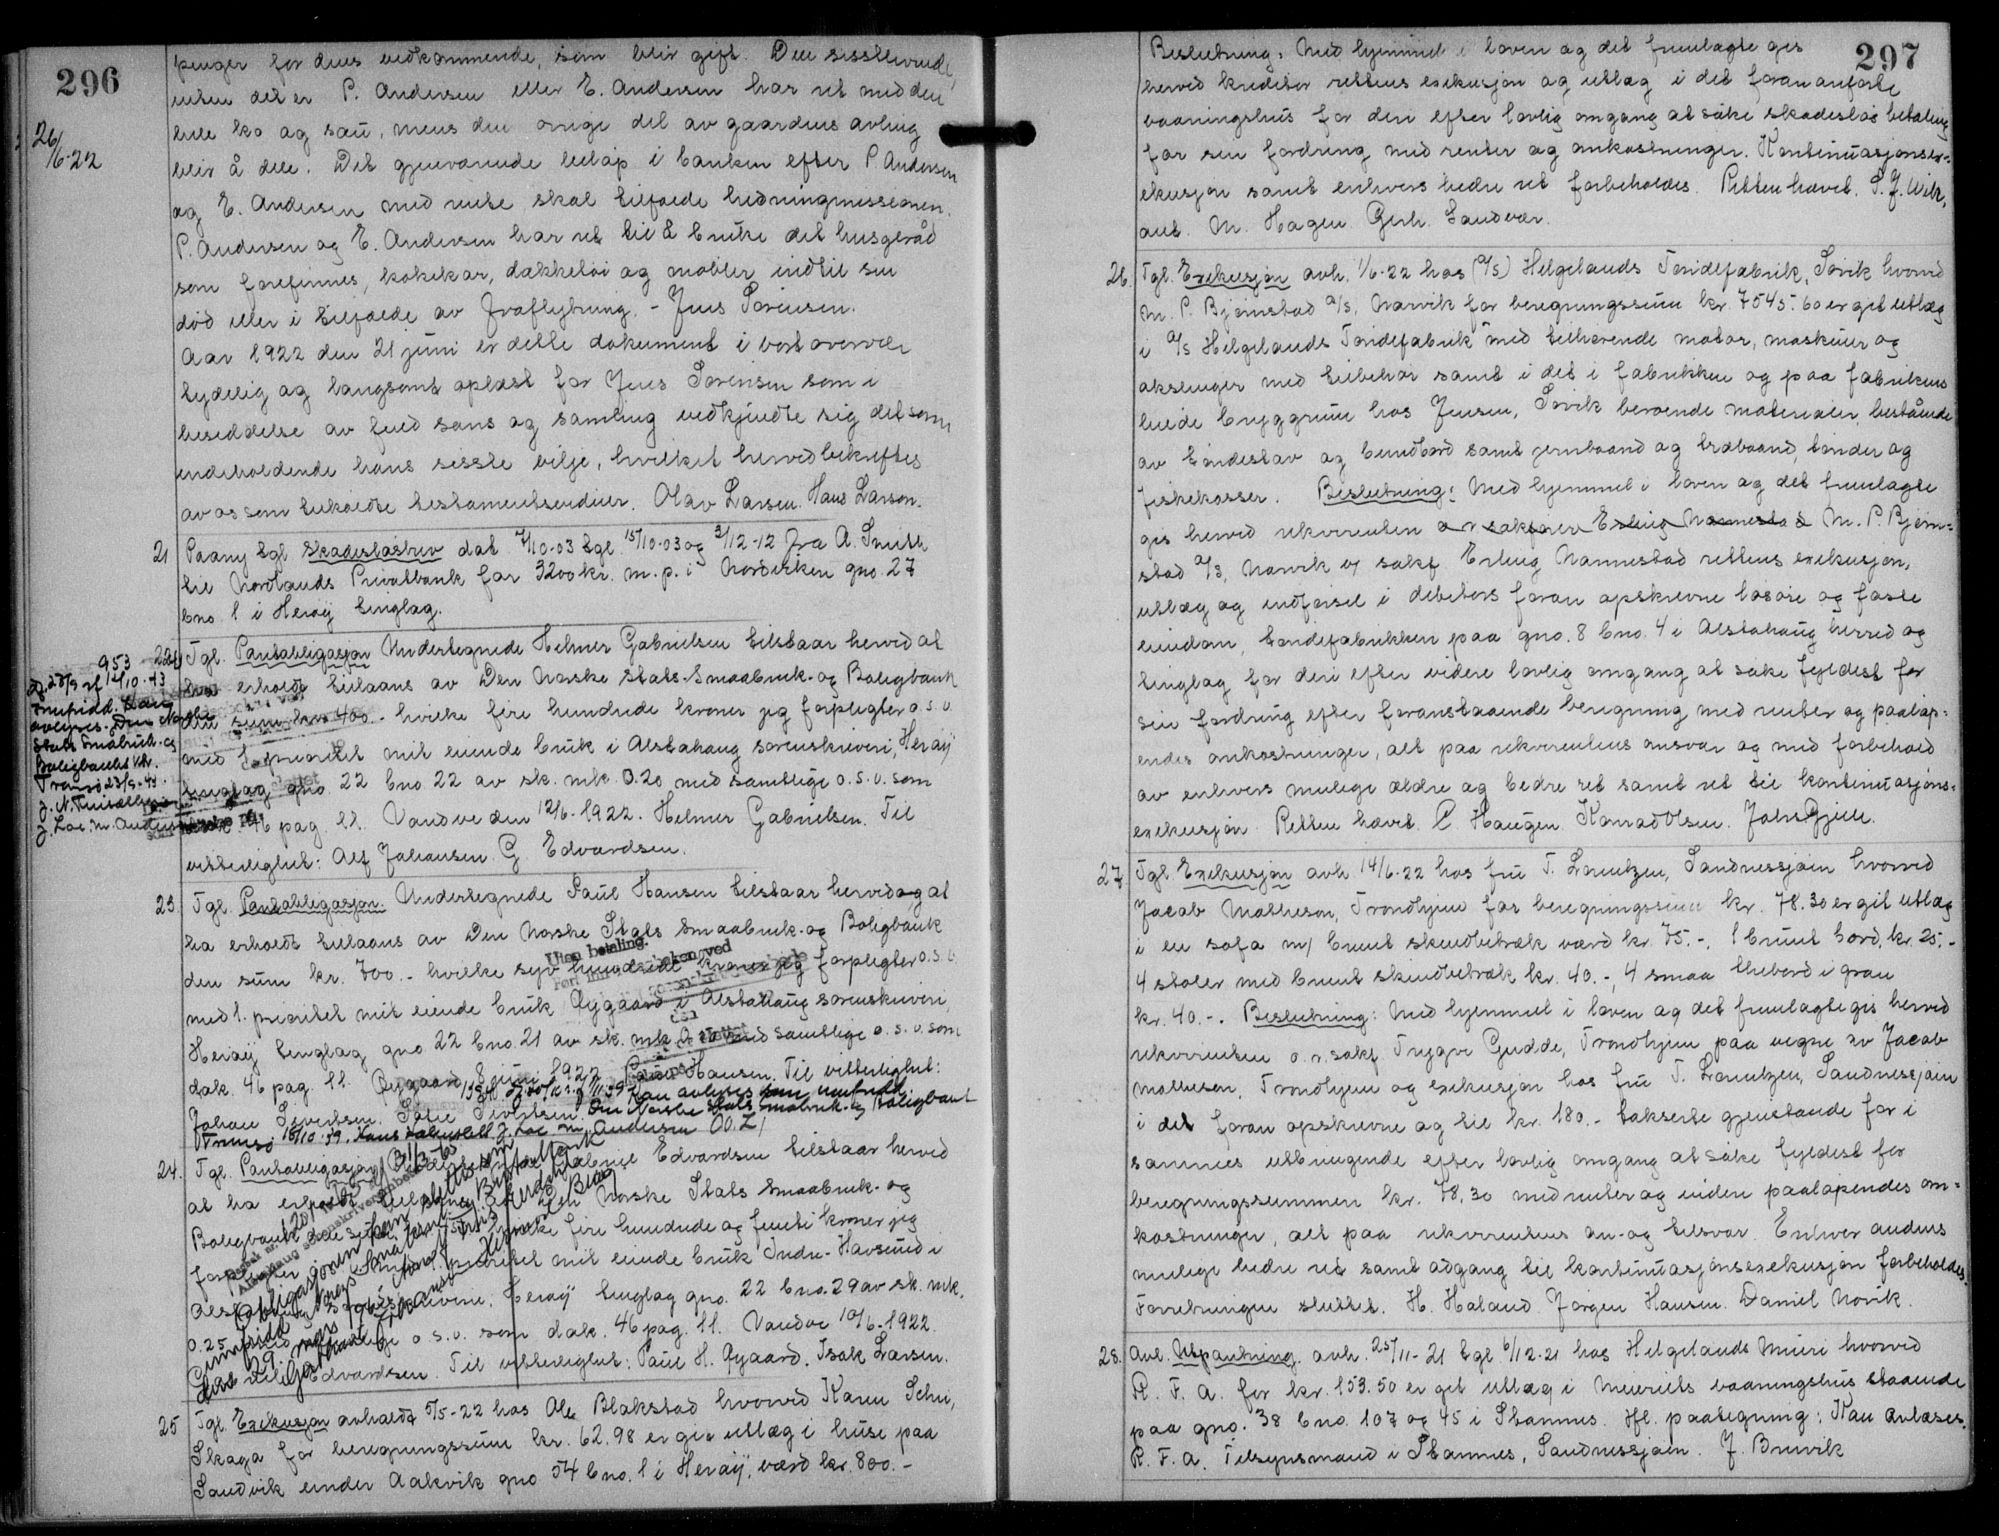 296
26/6-22
penger for dens vedkommende, som blir gift. Den sisstlevende,
enten det er P. Andersen eller E. Andersen har ret med den
hele ko og sau, mens den ovrige del av gaardens avling
blir å dele. Det gjenværende beløp i banken efter P. Andersen
og E. Andersen med rente skal tilfalde hedningmissionen.
P. Andersen og E. Andersen har ret til å bruke det husgeråd
som forefinnes, kokekar, dekketøi og møbler indtil sin
død eller i tilfælde av fraflytning. - Jens Sørensen.
Aar 1922 den 21 juni er dette dokument i vort overvær
tydelig og langsomt oplæst for Jens Sørensen som i
besiddelse av fuld sans og samling vedkjendte sig det som
indeholdende hans sisste vilje, hvilket herved bekræftes
av os som tilkaldte testamentsvidner. Olav Larsen. Hans Larson.
21 Paany tgl. skadesløsbrev dat 7/10-03 tgl. 15/10-03 og 3/12-12 fra A. Smith
til Nordlands Privatbank for 3200 kr. m. p. i Nordviken gno. 27
bno. 1 i Herøy tinglag.
22 Tgl. Pantobligasjon Undertegnede Helmer Gabrielsen tilstaar herved at
ha erholdt tillaans av Den Norske Stats-Smaabruk- og Boligbank
den sum kr. 400.- hvilke fire hundrede kroner jeg forpligter o.s.v.
med 1. prioritet mit eiende bruk i Alstahaug sorenskriveri, Herøy
tinglag gno. 22 bno 22 av sk. mk. 0.20 med samtlige o.s.v. som
46 pag. 11. Vandve den 12/6-1922. Helmer Gabrielsen. Til
vitterlighet: Alf Johansen. G Edvardsen.
953
12/10-43
avlyses. Den Norske
Stats Småbruk- og
Boligbank
Tromsø 23/9-43.
23. Tgl. Pantobligasjon. Undertegnede Paul Hansen tilstaar herved og at
ha erholdt tillaans av Den Norske Stats Smaabruk- og Boligbank
den sum kr. 700.- hvilke syv hundrede kroner jeg forpligter o.s.v.
Uten betaling.
med 1. prioritet mit eiende bruk Rygaard i Alstahaug sorenskriveri,
Herøy tinglag gno 22 bno. 21 av sk. mk. med samtlige o.s.v. som
dok. 46 pag. 11. Rygaard, 8 juni 1922 Paul Hansen. Til vitterlighet:
Johan Sivertsen. Sivertsen.
Kan avlyses som innfridd
Den Norske Stats Småbruk- og Boligbank
Tromsø 18/10-39.
24. Tgl. Pantobligasjon Edvardsen tilstaar herved
at ha erholdt Norske Stats Smaabruk- og
Boligbank den sum hvilke fire hundrede og femti kroner jeg
forpligter prioritet mit eiende bruk Indre-Havsund i
Herøy tinglag gno. 22 bno. 29 av sk. mk.
0.25 med samtlige o.s.v. som dok. 46 pag. 11. Vandve 10/6-1922.
Edvardsen. Til vitterlighet: Paul H. Rygaard. Isak Larsen.
31/3-65
25 Tgl. Exekusjon avholdt 5/5-22 hos Ole Blakstad hvorved Karen
Skaga for beregningssum kr. 62.98 er git utlæg i huse paa
Sandvik under Aakvik gno 54 bno. 1 i Herøy, værd kr. 800.-
297
Beslutning: Med hjemmel i loven og det fremlagte gis
herved kreditor rettens exekusjon og utlæg i det foran anførte
vaaningshus for deri efter lovlig omgang at søke skadesløs betaling
for sin fordring med renter og omkostninger. Kontinuasjonsex-
ekusjon samt enhvers bedre ret forbeholdes. Retten hævet. S. J. Wik,
aut. M. Hagen Gerh. Sandvær.
26. Tgl. Exekusjon avh. 1/6-22 hos (A/S) Helgelands Tøndefabrik, Søvik hvorved
M. P. Bjørnstad A/S, Narvik for beregningssum kr. 7545.60 er git utlæg
i A/S Helgelands Tøndefabrik med tilhørende motor, maskiner og
akslinger med tilbehør samt i det i fabrikken og paa fabrikens
leiede bryggrum hos Jensen, Søvik beroende materialer, bestående
av tøndestav og bundbord samt jernbaand og træbaand, tønder og
fiskekasser. Beslutning: Med hjemmel i loven og det fremlagte
gis herved rekvirenten o r sakfører Erling Nannestad M. P. Bjørn-
stad A/S, Narvik v/ sakf. Erling Nannestad rettens exekusjon,
utlæg og indførsel i debitors foran opskrevne løsøre og faste
eiendom, tøndefabrikken paa gno. 8 bno. 4 i Alstahaug herred og
tinglag for deri efter videre lovlig omgang at søke fyldest for
sin fordring efter foranstaaende beregning med renter og paaløp-
endes omkostninger, alt paa rekvirentens ansvar og med forbehold
av enhvers mulige ældre og bedre ret samt ret til kontinuasjons-
exekusjon. Retten hævet. P. Haugen. Konrad Olsen. John Gjien.
27. Tgl. Exekusjon avh. 14/6-22 hos fru T. Lorentzen, Sandnessjøen hvorved
Jacob Matheson, Trondhjem for beregningssum kr. 78.30 er git utlæg
i en sofa m/ brunt skindbetræk værd kr. 75.-, 1 brunt bord, kr. 25.-
4 stoler med brunt skindbetræk kr. 40.-, 4 smaa thebord i grøn
kr. 40.-. Beslutning: Med hjemmel i loven og det fremlagte gis herved
rekvirenten o.r.sakf. Trygve Gudde, Trondhjem paa vegne av Jacob
Matheson, Trondhjem og exekusjon hos fru T. Lorentzen, Sandnessjøen
i det foran opskrevne og til kr. 180.- takserte gjenstande for i
sammes utbringende efter lovlig omgang at søke fyldest for
beregningssummen kr. 78,30 med renter og videre paaløpendes om-
kostninger, alt paa rekvirentens an- og tilsvar. Enhver andens
mulige bedre ret samt adgang til kontinuasjonsexekusjon forbeholdes.
Forretningen sluttet. H. Holand. Jørgen Hansen. Daniel Norvik.
28. Avl. Utpantning. avh. 25/11-21 tgl. 6/12-21 hos Helgelands Mieri hvorved
R. F. A. for kr. 153.50 er git utlæg i Meieriets vaaningshus staaende
paa gno. 38 bno. 107 og 45 i Stamnes. Ifl. paategning: Kan avlæses.
R. F. A. Tilsynsmand i Stamnes, Sandnessjøen. J. Brevik